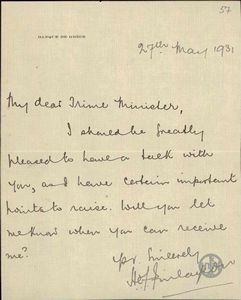 57
BANQUE DE GRÈCE
27th May 1931
My dear Prime Minister,
I should be greatly
pleased to have a talk with
you, as I have certain important
points to raise. Will you let
me know when you can receive
me?
Yr. Sincerely
H. C. Finlayson